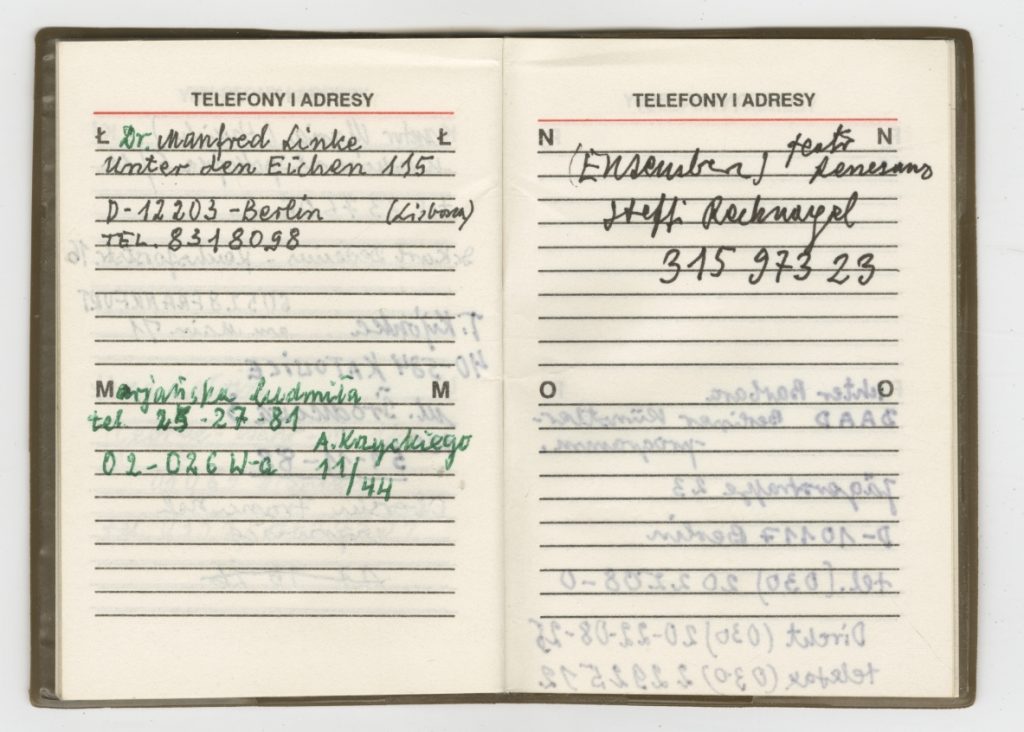 TELEFONY I ADRESY
Ł Dr. Manfred Linke Ł
Unter den Eichen 115
D-12203-Berlin (Lisbona)
TEL. 8318098
M Marjańska Ludmiła M
tel. 25-27-81
A. Krzyckiego
02-026 W-a 11/44
TELEFONY I ADRESY
N N
teatr
Renesans
Steffi Recknagel
315 973 23
O O